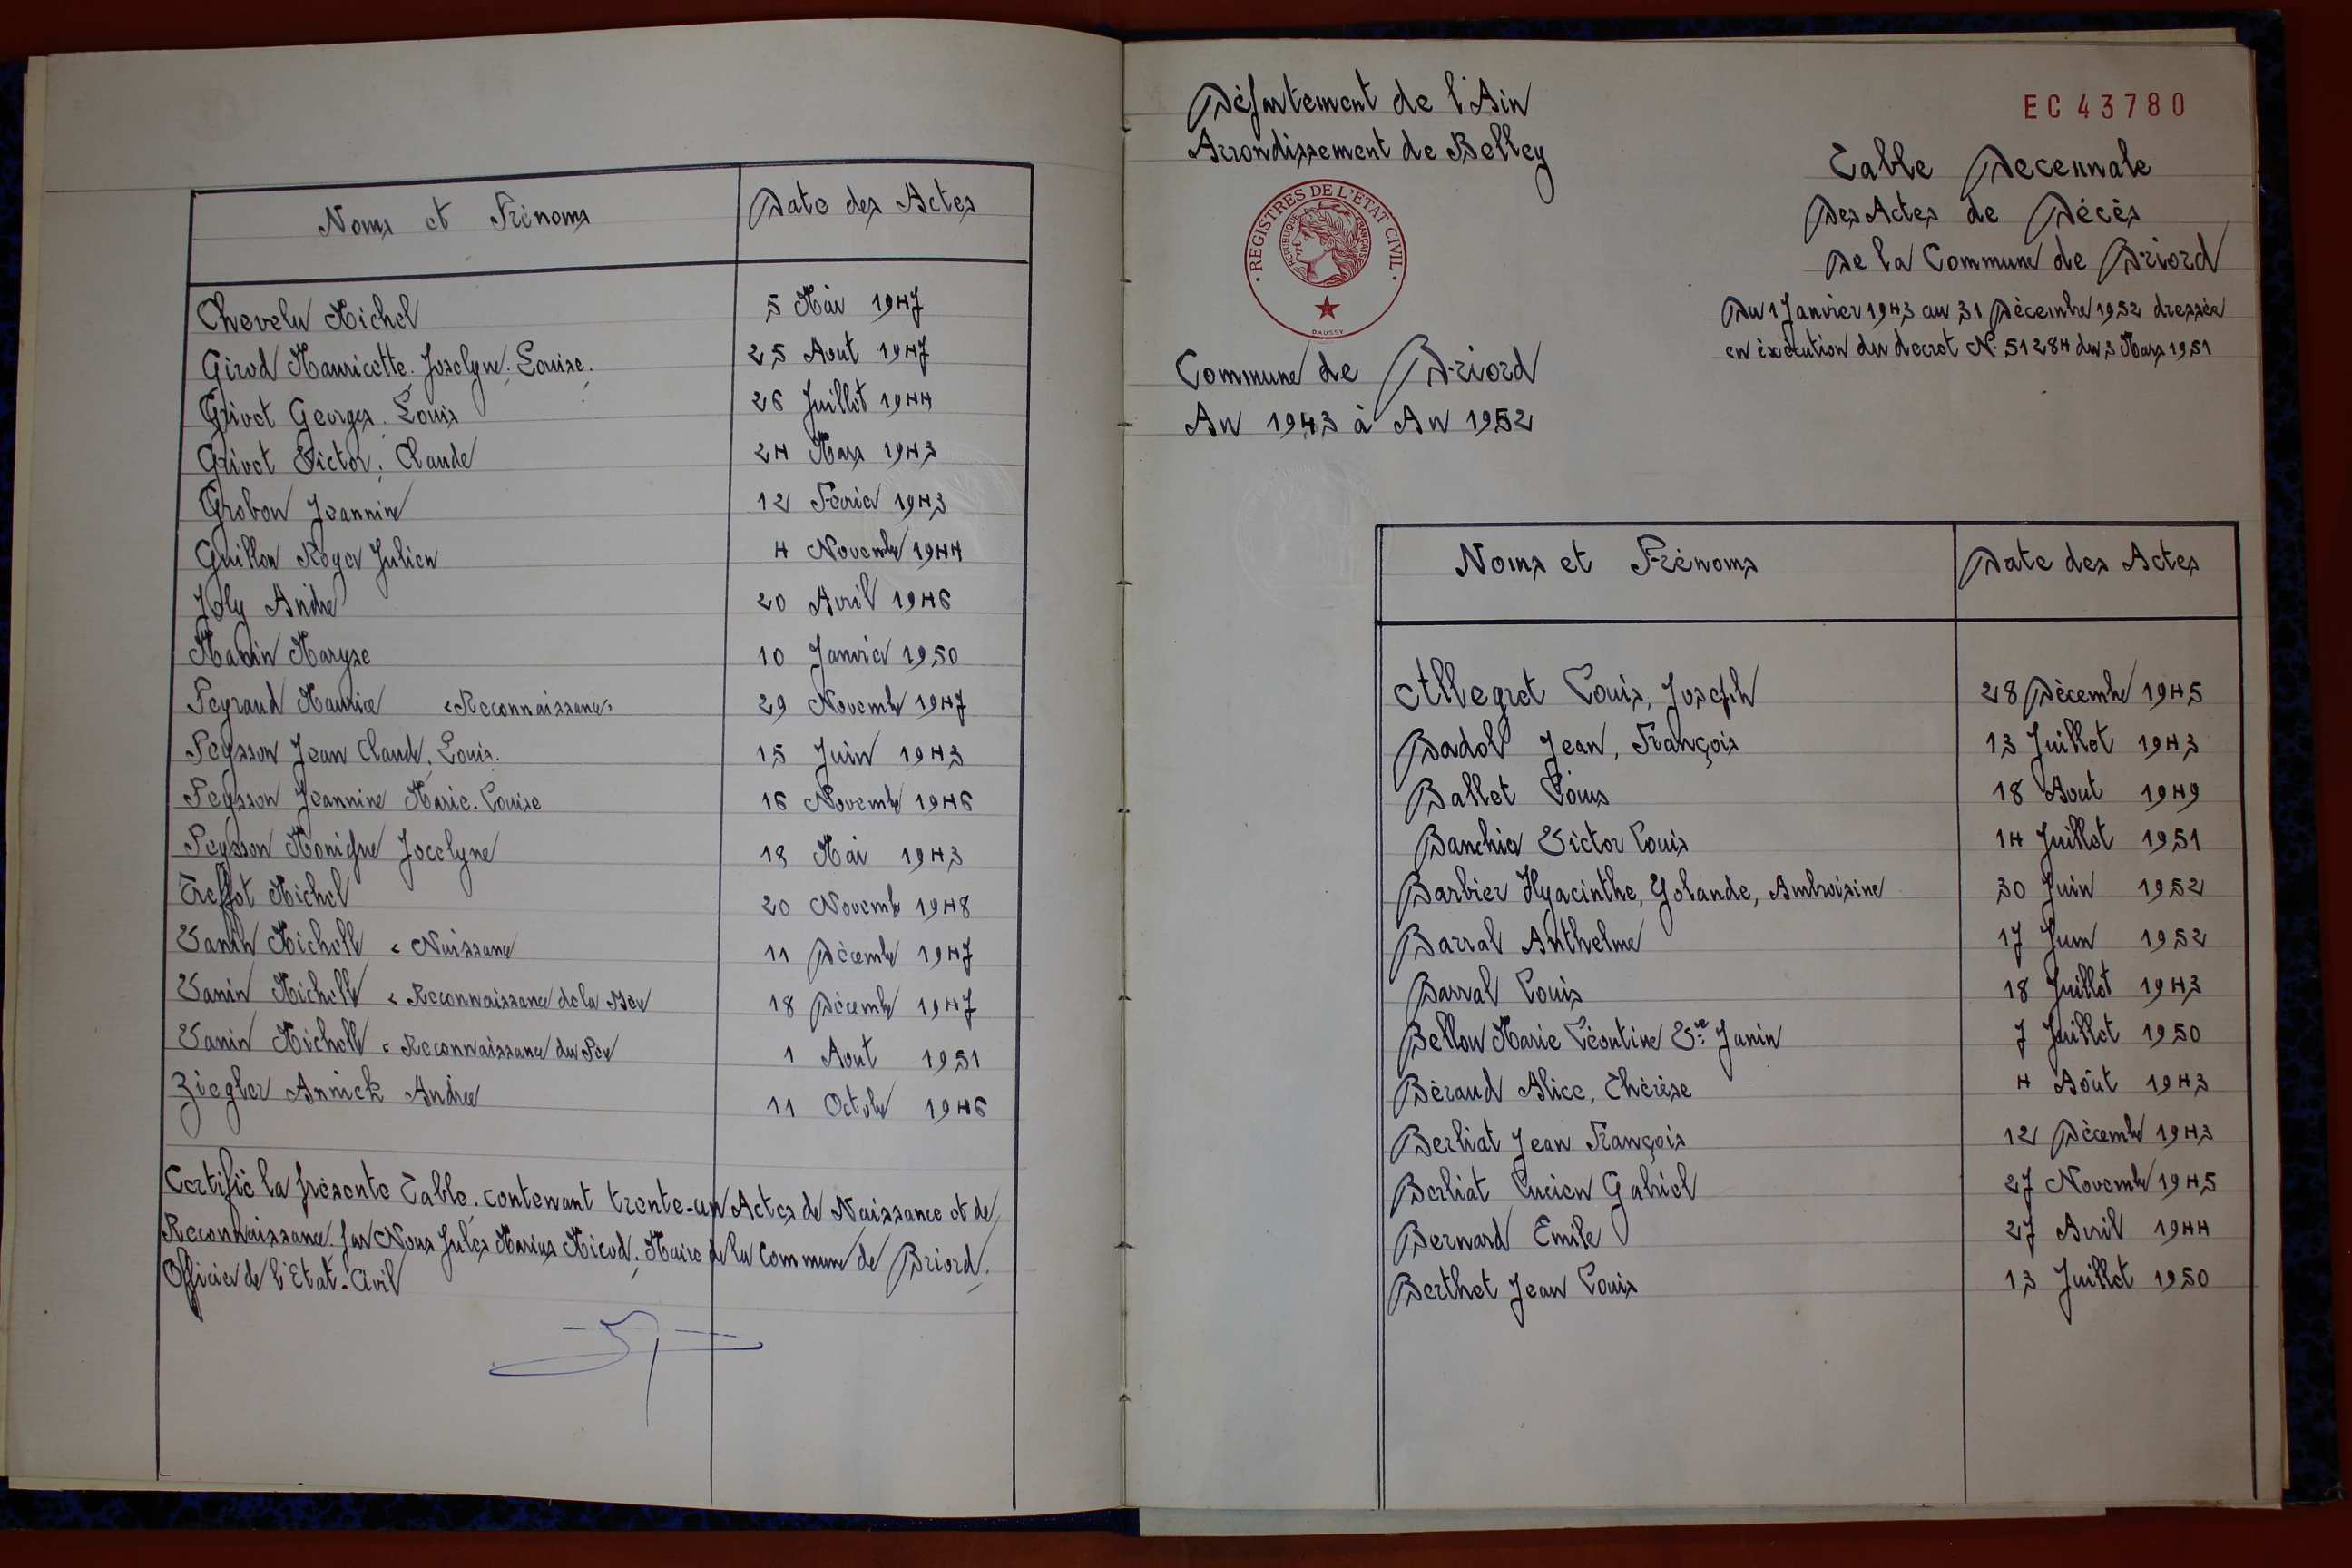 Noms et Prénoms Date des Actes
Chevelu Michel 5 Mai 1947
Girod Mauricette. Joselyne. Louise. 25 Aout 1947
Grivot Georges. Louis 26 Juillet 1944
Grivot Victor. Claude 24 Mars 1943
Grobon Jeannine 12 Février 1943
Guillon Roger Julien 4 Novembre 1944
Joly André 20 Avril 1946
Manin Maryse 10 Janvier 1950
Peyraud Maurice "Reconnaissance" 29 Novembre 1947
Peysson Jean Claude. Louis. 15 Juin 1943
Peysson Jeannine Marie. Louise 16 Novembre 1946
Peysson Monique Jocelyne 18 Mai 1943
Treffot Michel 20 Novembre 1948
Vanin Michelle "Naissance 11 Décembre 1947
Vanin Michelle "Reconnaissance de la Mère 18 Décembre 1947
Vanin Michelle "Reconnaissance du Père 1 Aout 1951
Ziegler Annick Andrée 11 Octobre 1946
Certifié la présente Table. contenant trente-un Actes de Naissance et de
Reconnaissance. par Nous Jules Marius Micod. Maire de la Commune de Briord.
Officier de l'Etat-Civil
Département de l'Ain
Arrondissement de Belley
REGISTRES DE L'ETAT CIVIL
REPUBLIQUE FRANÇAISE
DAUSSY
Commune de Briord
An 1943 à An 1952
EC 43780
Table Decennale
Des Actes de Décès
De la Commune de Briord
Du 1 Janvier 1943 au 31 Décembre 1952 dressée
en exécution du decret N. 51284 du 3 Mars 1951
Noms et Prénoms Date des Actes
Allegret Louis, Joseph 28 Décembre 1945
Badol Jean, François 13 Juillet 1943
Ballet Louis 18 Aout 1949
Banchier Victor Louis 14 Juillet 1951
Barbier Hyacinthe, Yolande, Ambroisine 30 Juin 1952
Barral Anthelme 17 Juin 1952
Barral Louis 18 Juillet 1943
Bellou Marie Léontine Vve Janin 7 Juillet 1950
Béraud Alice, Thérèse 4 Aôut 1943
Berliat Jean François 12 Décembre 1943
Berliat Lucien Gabriel 27 Novembre 1945
Bernard Emile 27 Avril 1944
Berthet Jean Louis 13 Juillet 1950